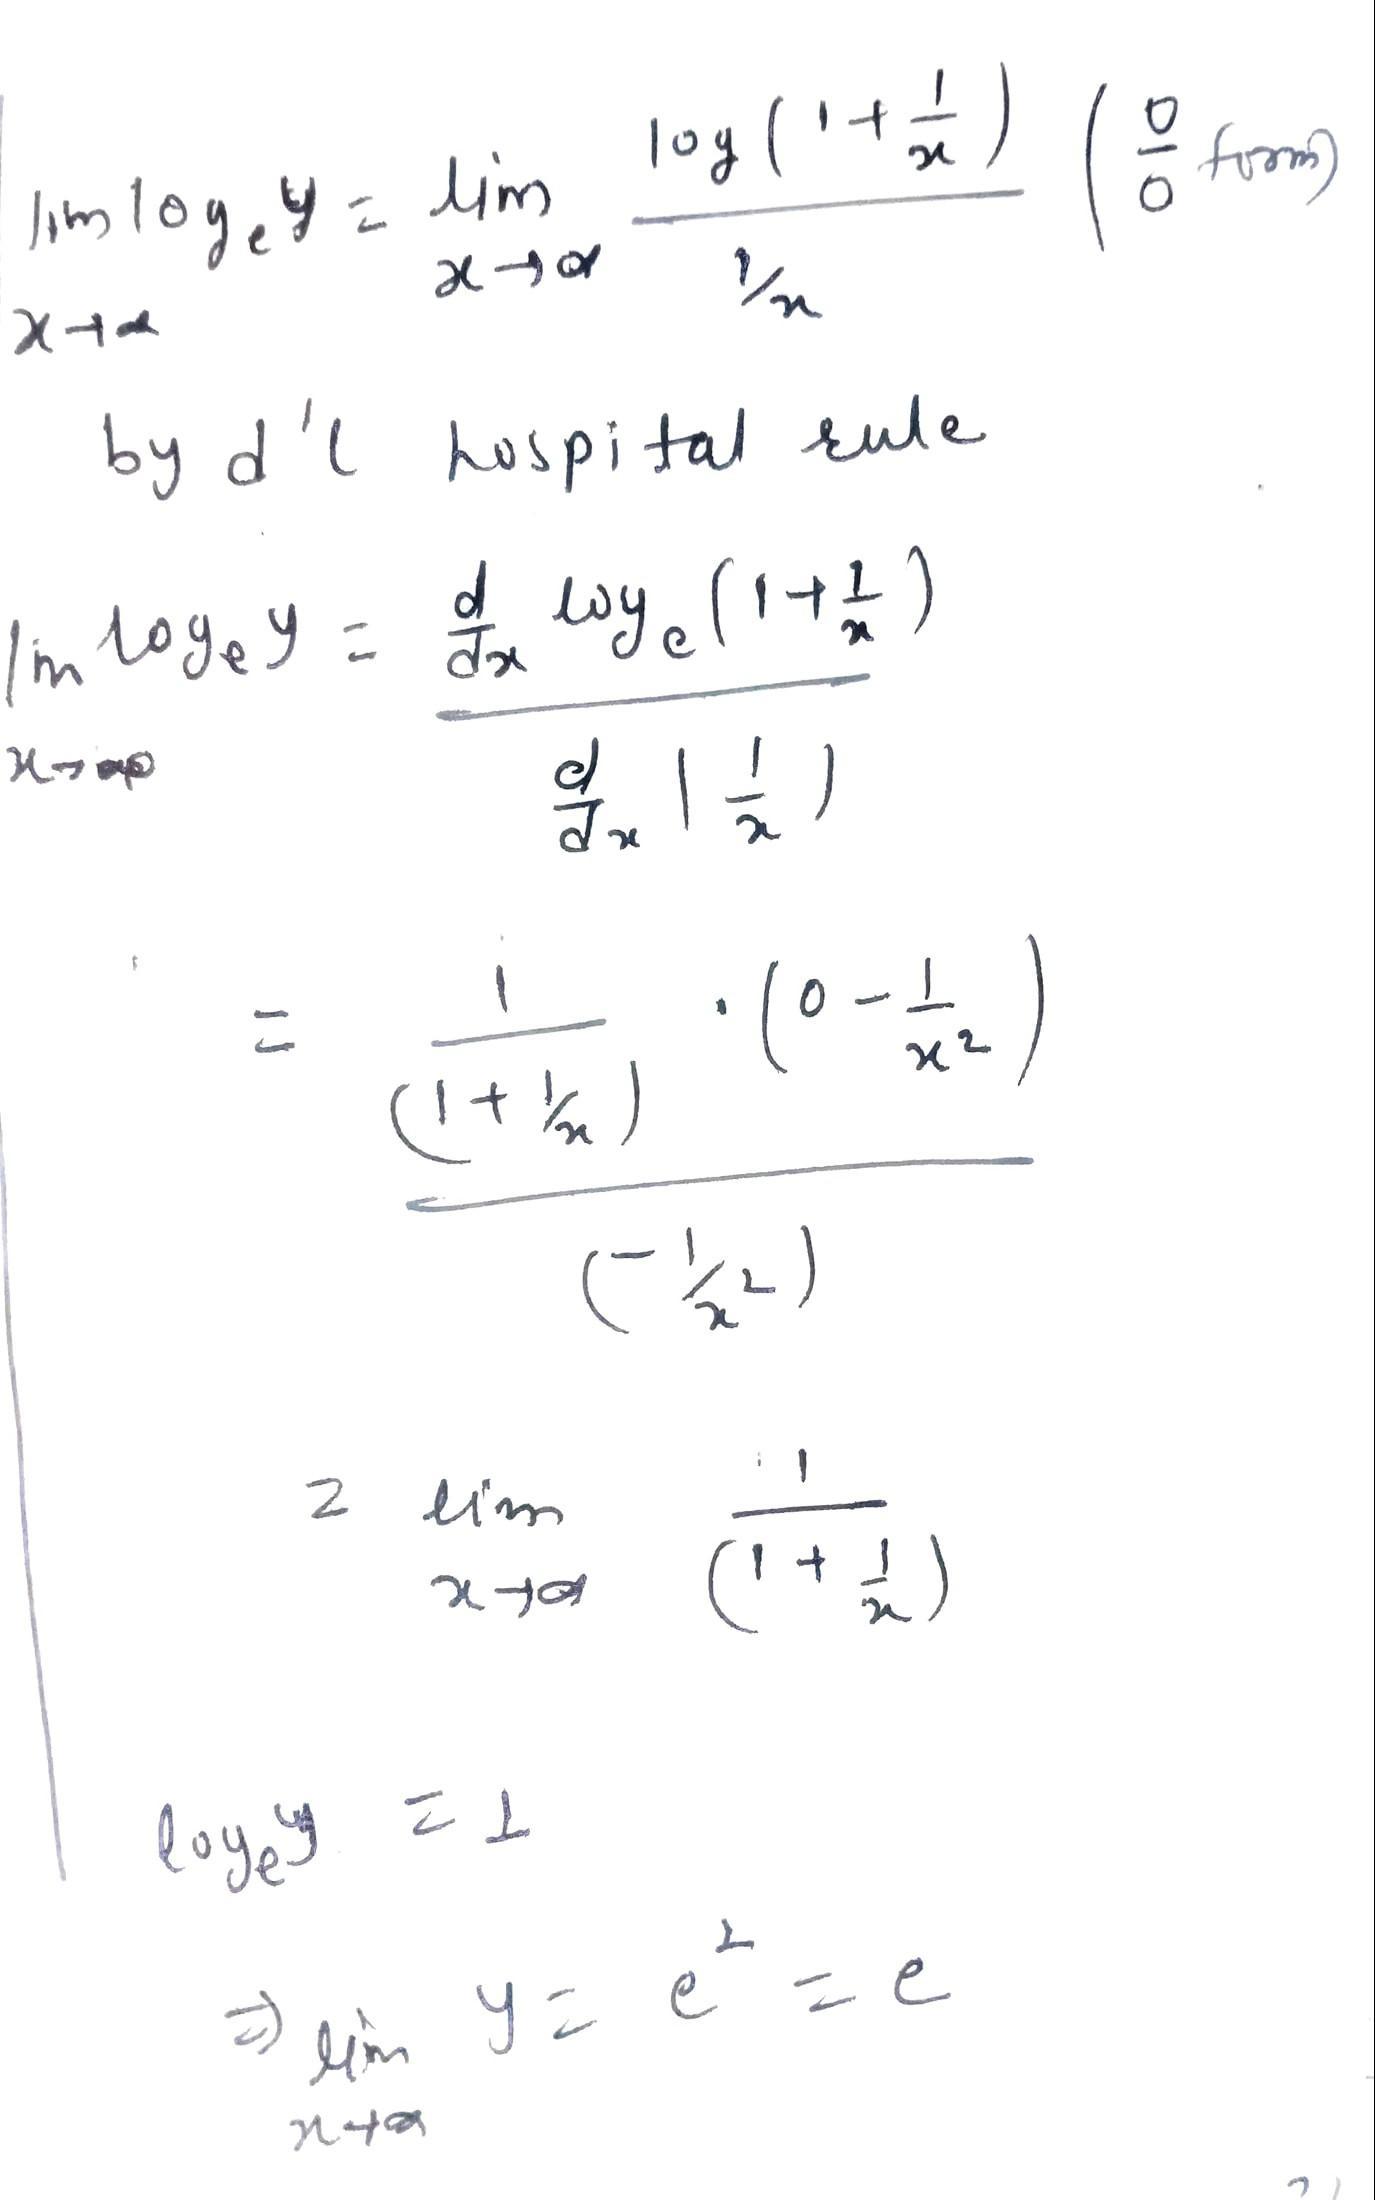 lim log_e y = lim log(1 + 1/x) / 1/x (0/0 form)
x→∞ x→∞
by d'l hospital rule
lim log_e y = d/dx log_e (1 + 1/x) / d/dx (1/x)
x→∞
= 1/(1 + 1/x) · (0 - 1/x²) / (-1/x²)
= lim 1/(1 + 1/x)
x→∞
log_e y = 1
⇒ lim y = e¹ = e
x→∞